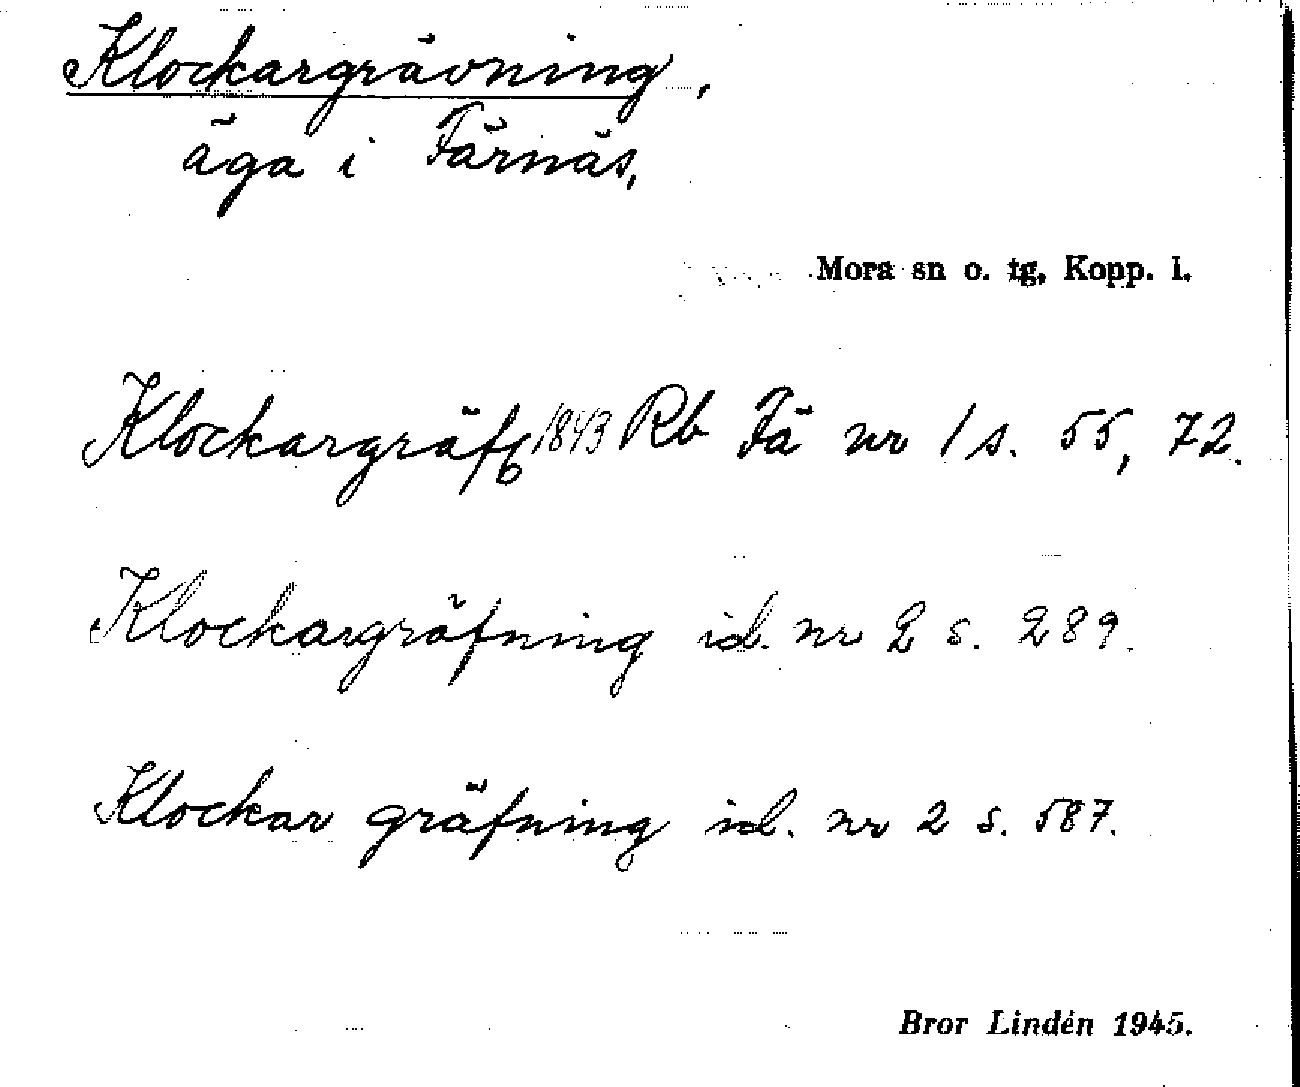 Klockargrävning,
äga i Färnäs,
Mora sn o. tg, Kopp. l.
Klockargräfg 1843 Rb Fä nr 1 s. 55, 72.
Klockargräfning id. nr 2 s. 289.
Klockar gräfning id. nr 2 s. 587.
Bror Lindén 1945.